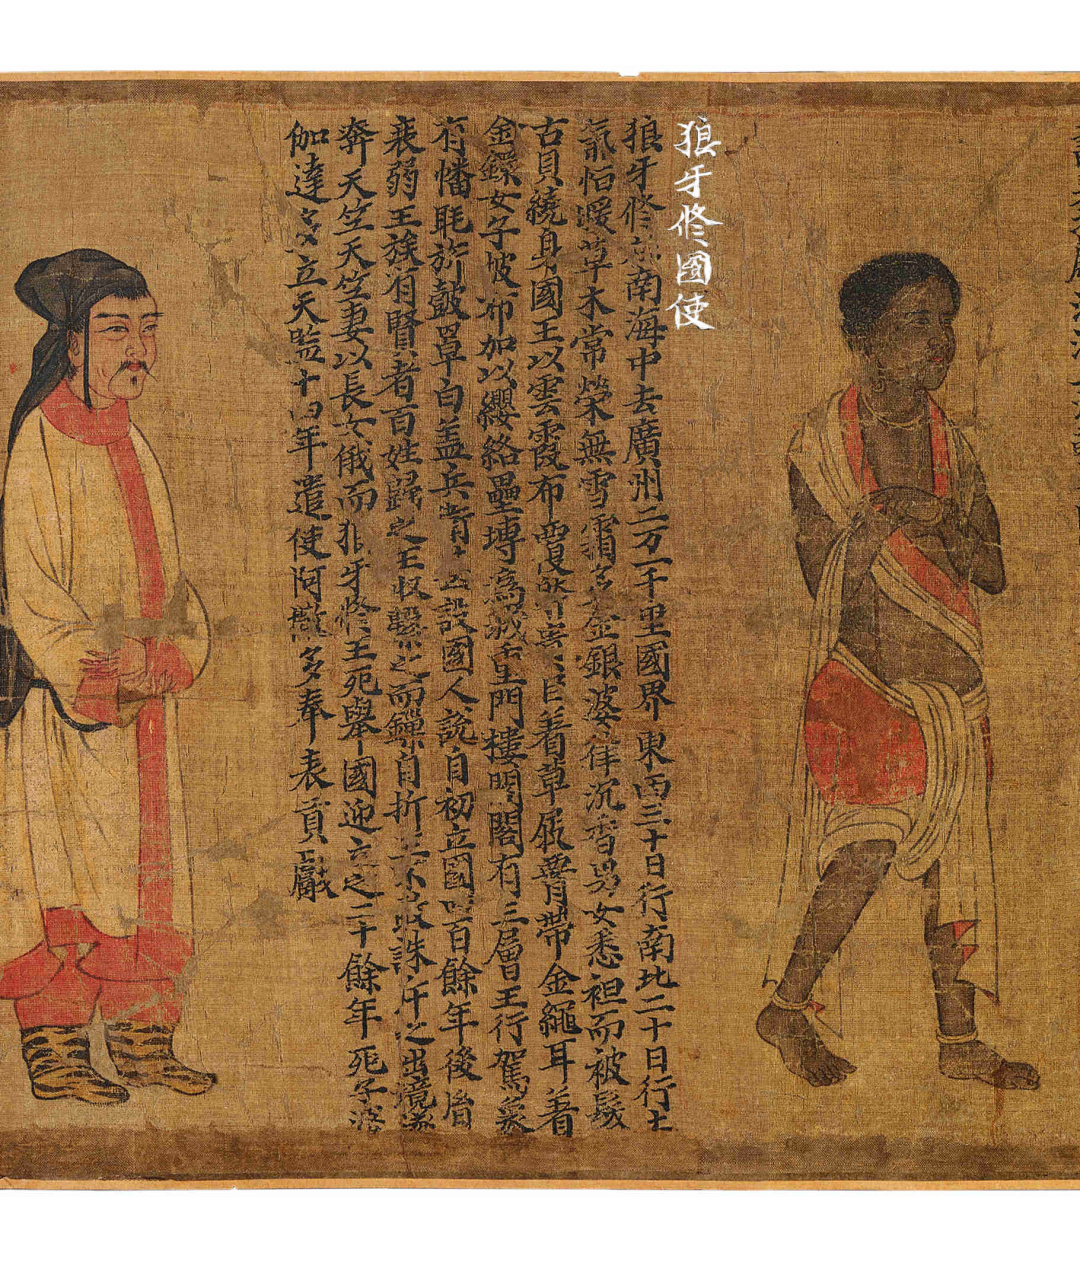 狼牙修國使
狼牙修南海中去廣州二万一千里國界東西三十日行南北二十日行土
氣恒暖草木常榮無雪霜多金銀婆律沉香男女悉袒而被髮
古貝繞身國王以雲霞布覆臣着草屐要帶金繩耳着
金鐶女子披布加以纓絡壘塼爲城重門樓閣有三層王行駕象
有幡毦旂鼓罩白盖兵設國人說自初立國百餘年後胤
衰弱王族有賢者百姓歸之王収繫之而鏁自折王不敢誅斥之出境遂
奔天竺天竺妻以長女俄而狼牙修王死舉國迎立之二十餘年死子婆
伽達多立天監十四年遣使阿撤多奉表貢獻